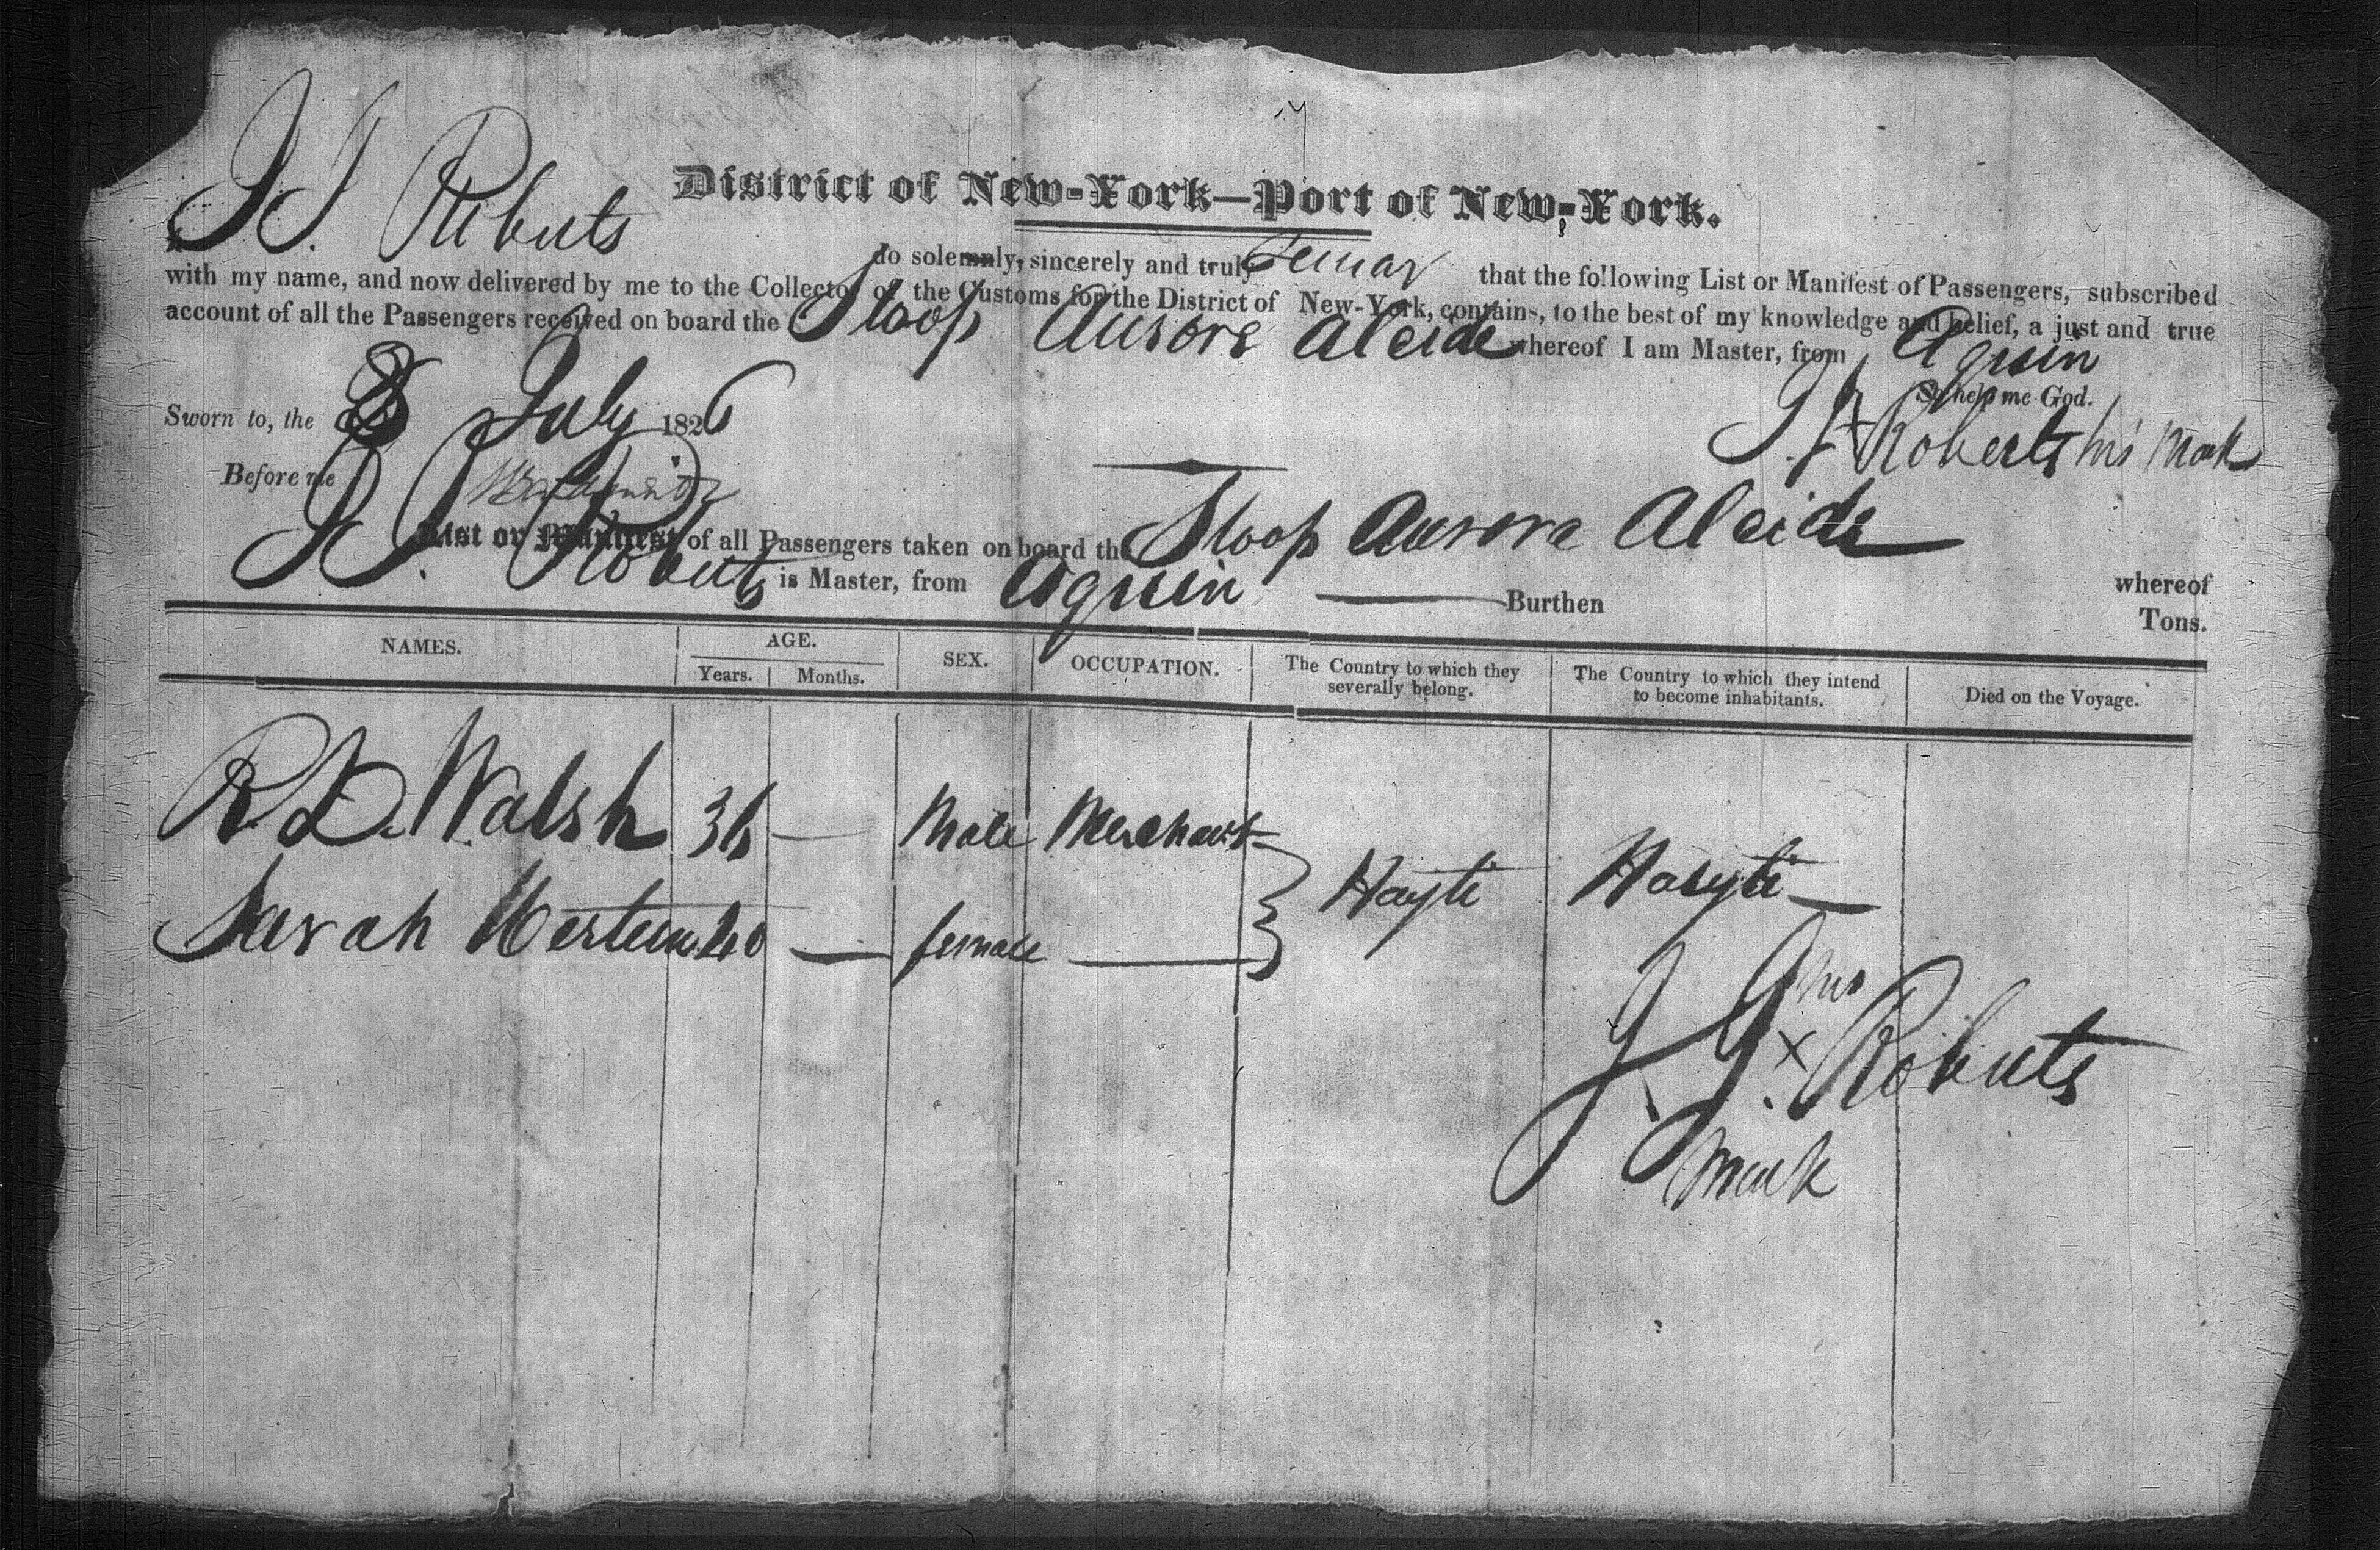 District of New-York—Port of New-York.
J J. Roberts do solemnly, sincerely and truly swear that the following List or Manifest of Passengers, subscribed
with my name, and now delivered by me to the Collector of the Customs for the District of New-York, contains, to the best of my knowledge and belief, a just and true
account of all the Passengers received on board the Sloop Aurora Alcide whereof I am Master, from Aquin
So help me God.
Sworn to, the 8 July 1826
J. J. X Roberts his Mark
Before me
List or Manifest of all Passengers taken on board the Sloop Aurora Alcide whereof
J J. Roberts is Master, from Aquin Burthen Tons.
NAMES. AGE. SEX. OCCUPATION. The Country to which they severally belong. The Country to which they intend to become inhabitants. Died on the Voyage.
Years. Months.
R. D. Walsh 36 — Male Merchant
Hayti Hayti
Sarah 40 — female —
his
J. J. x Roberts
mark